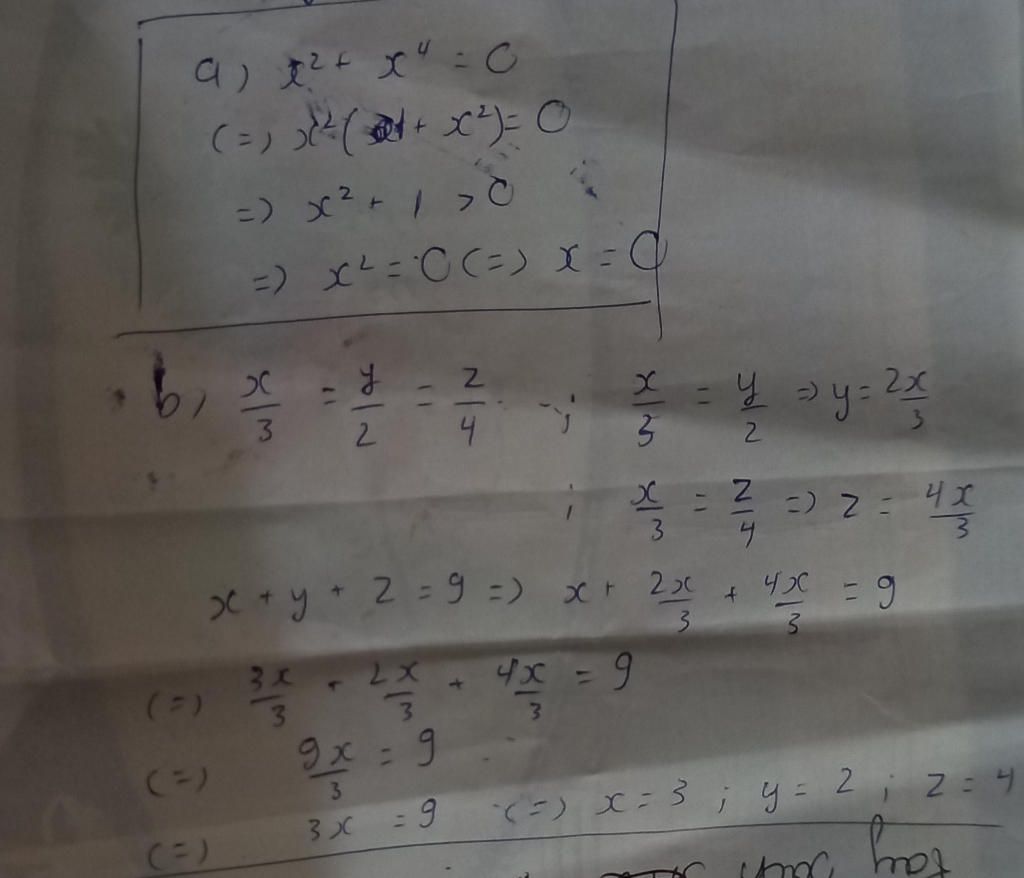 a) x² + x⁴ = 0
(=) x²(1 + x²) = 0
=) x² + 1 > 0
=) x² = 0 (=) x = 0
b) x/3 = y/2 = z/4 ; x/3 = y/2 =) y = 2x/3
; x/3 = z/4 =) z = 4x/3
x + y + z = 9 =) x + 2x/3 + 4x/3 = 9
(=) 3x/3 + 2x/3 + 4x/3 = 9
(=) 9x/3 = 9
(=) 3x = 9 (=) x = 3 ; y = 2 ; z = 4